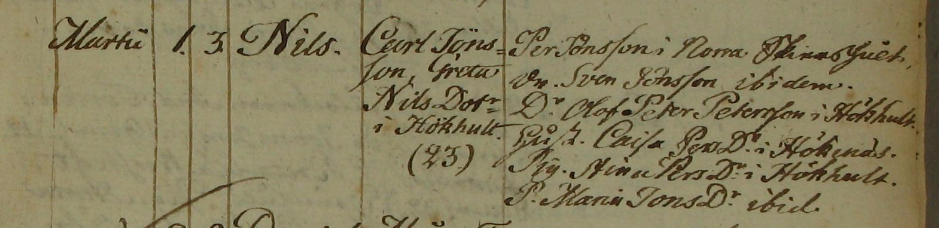 Martii 1. 3. Nils. Carl Jöns=
son, Greta
Nils Dotr
i Hökhult.
(23)
Per Jönsson i Norra
Dr. Sven Jönsson ibidem.
Dr. Olof Peter Petersson i Hökhult.
Hust. Caisa Pers Dr. i Hökenäs.
Pig. Stina Pers Dr. i Hökhult.
P. Maria Jons Dr. ibid.